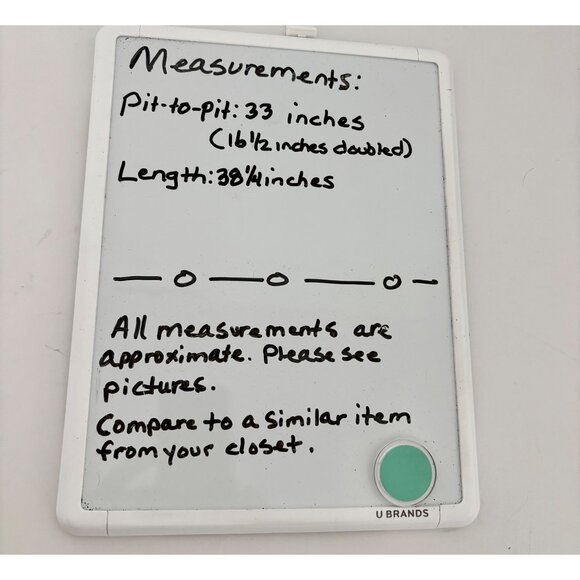 Measurements:
Pit-to-pit: 33 inches
(16 1/2 inches doubled)
Length: 38 1/4 inches
All measurements are
approximate. Please see
pictures.
Compare to a similar item
from your closet.
U BRANDS